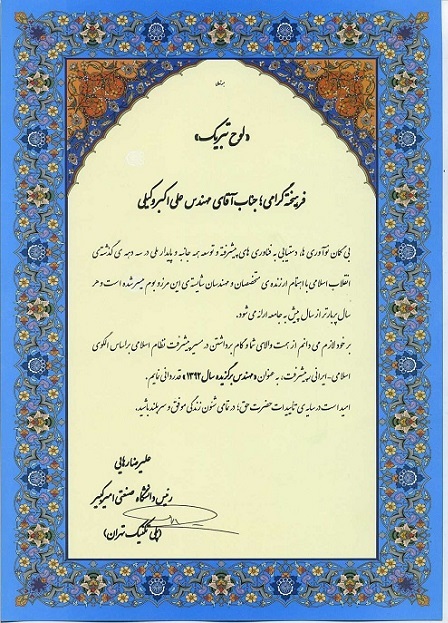 «لوح تبریک»
فرهیخته گرامی؛ جناب آقای مهندس علی اکبر وکیلی
بی گمان نوآوری ها، دستیابی به فناوری های پیشرفته و توسعه همه جانبه و پایدار ملی در سه دهه ی گذشته ی
انقلاب اسلامی با اهتمام ارزنده ی متخصصان و مهندسان شایسته ی این مرز و بوم میسر شده است و هر
سال پربارتر از سال پیش به جامعه ارائه می شود.
بر خود لازم می دانم از همت والای شما و گام برداشتن در مسیر پیشرفت نظام اسلامی بر اساس الگوی
اسلامی-ایرانی پیشرفت، به عنوان «مهندس برگزیده سال ۱۳۹۲» قدردانی نمایم.
امید است در سایه ی تأییدات حضرت حق؛ در تمامی شئون زندگی موفق و سربلند باشید.
علیرضا رهایی
رئیس دانشگاه صنعتی امیرکبیر
(پلی تکنیک تهران)